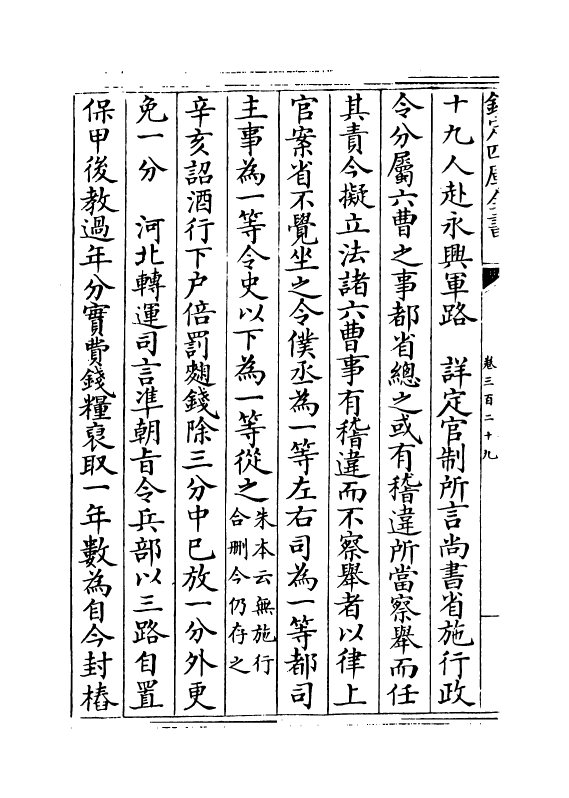 欽定四庫全書
卷三百二十九
十九人赴永興軍路　詳定官制所言尚書省施行政
令分屬六曹之事都省總之或有稽違所當察舉而任
其責今擬立法諸六曹事有稽違而不察舉者以律上
官案省不覺坐之令僕丞為一等左右司為一等都司
主事為一等令史以下為一等從之朱本云無施行合刪今仍存之
辛亥詔酒行下户倍罰麴錢除三分中已放一分外更
免一分　河北轉運司言凖朝㫖令兵部以三路自置
保甲後教過年分實費錢糧裒取一年數為自今封樁